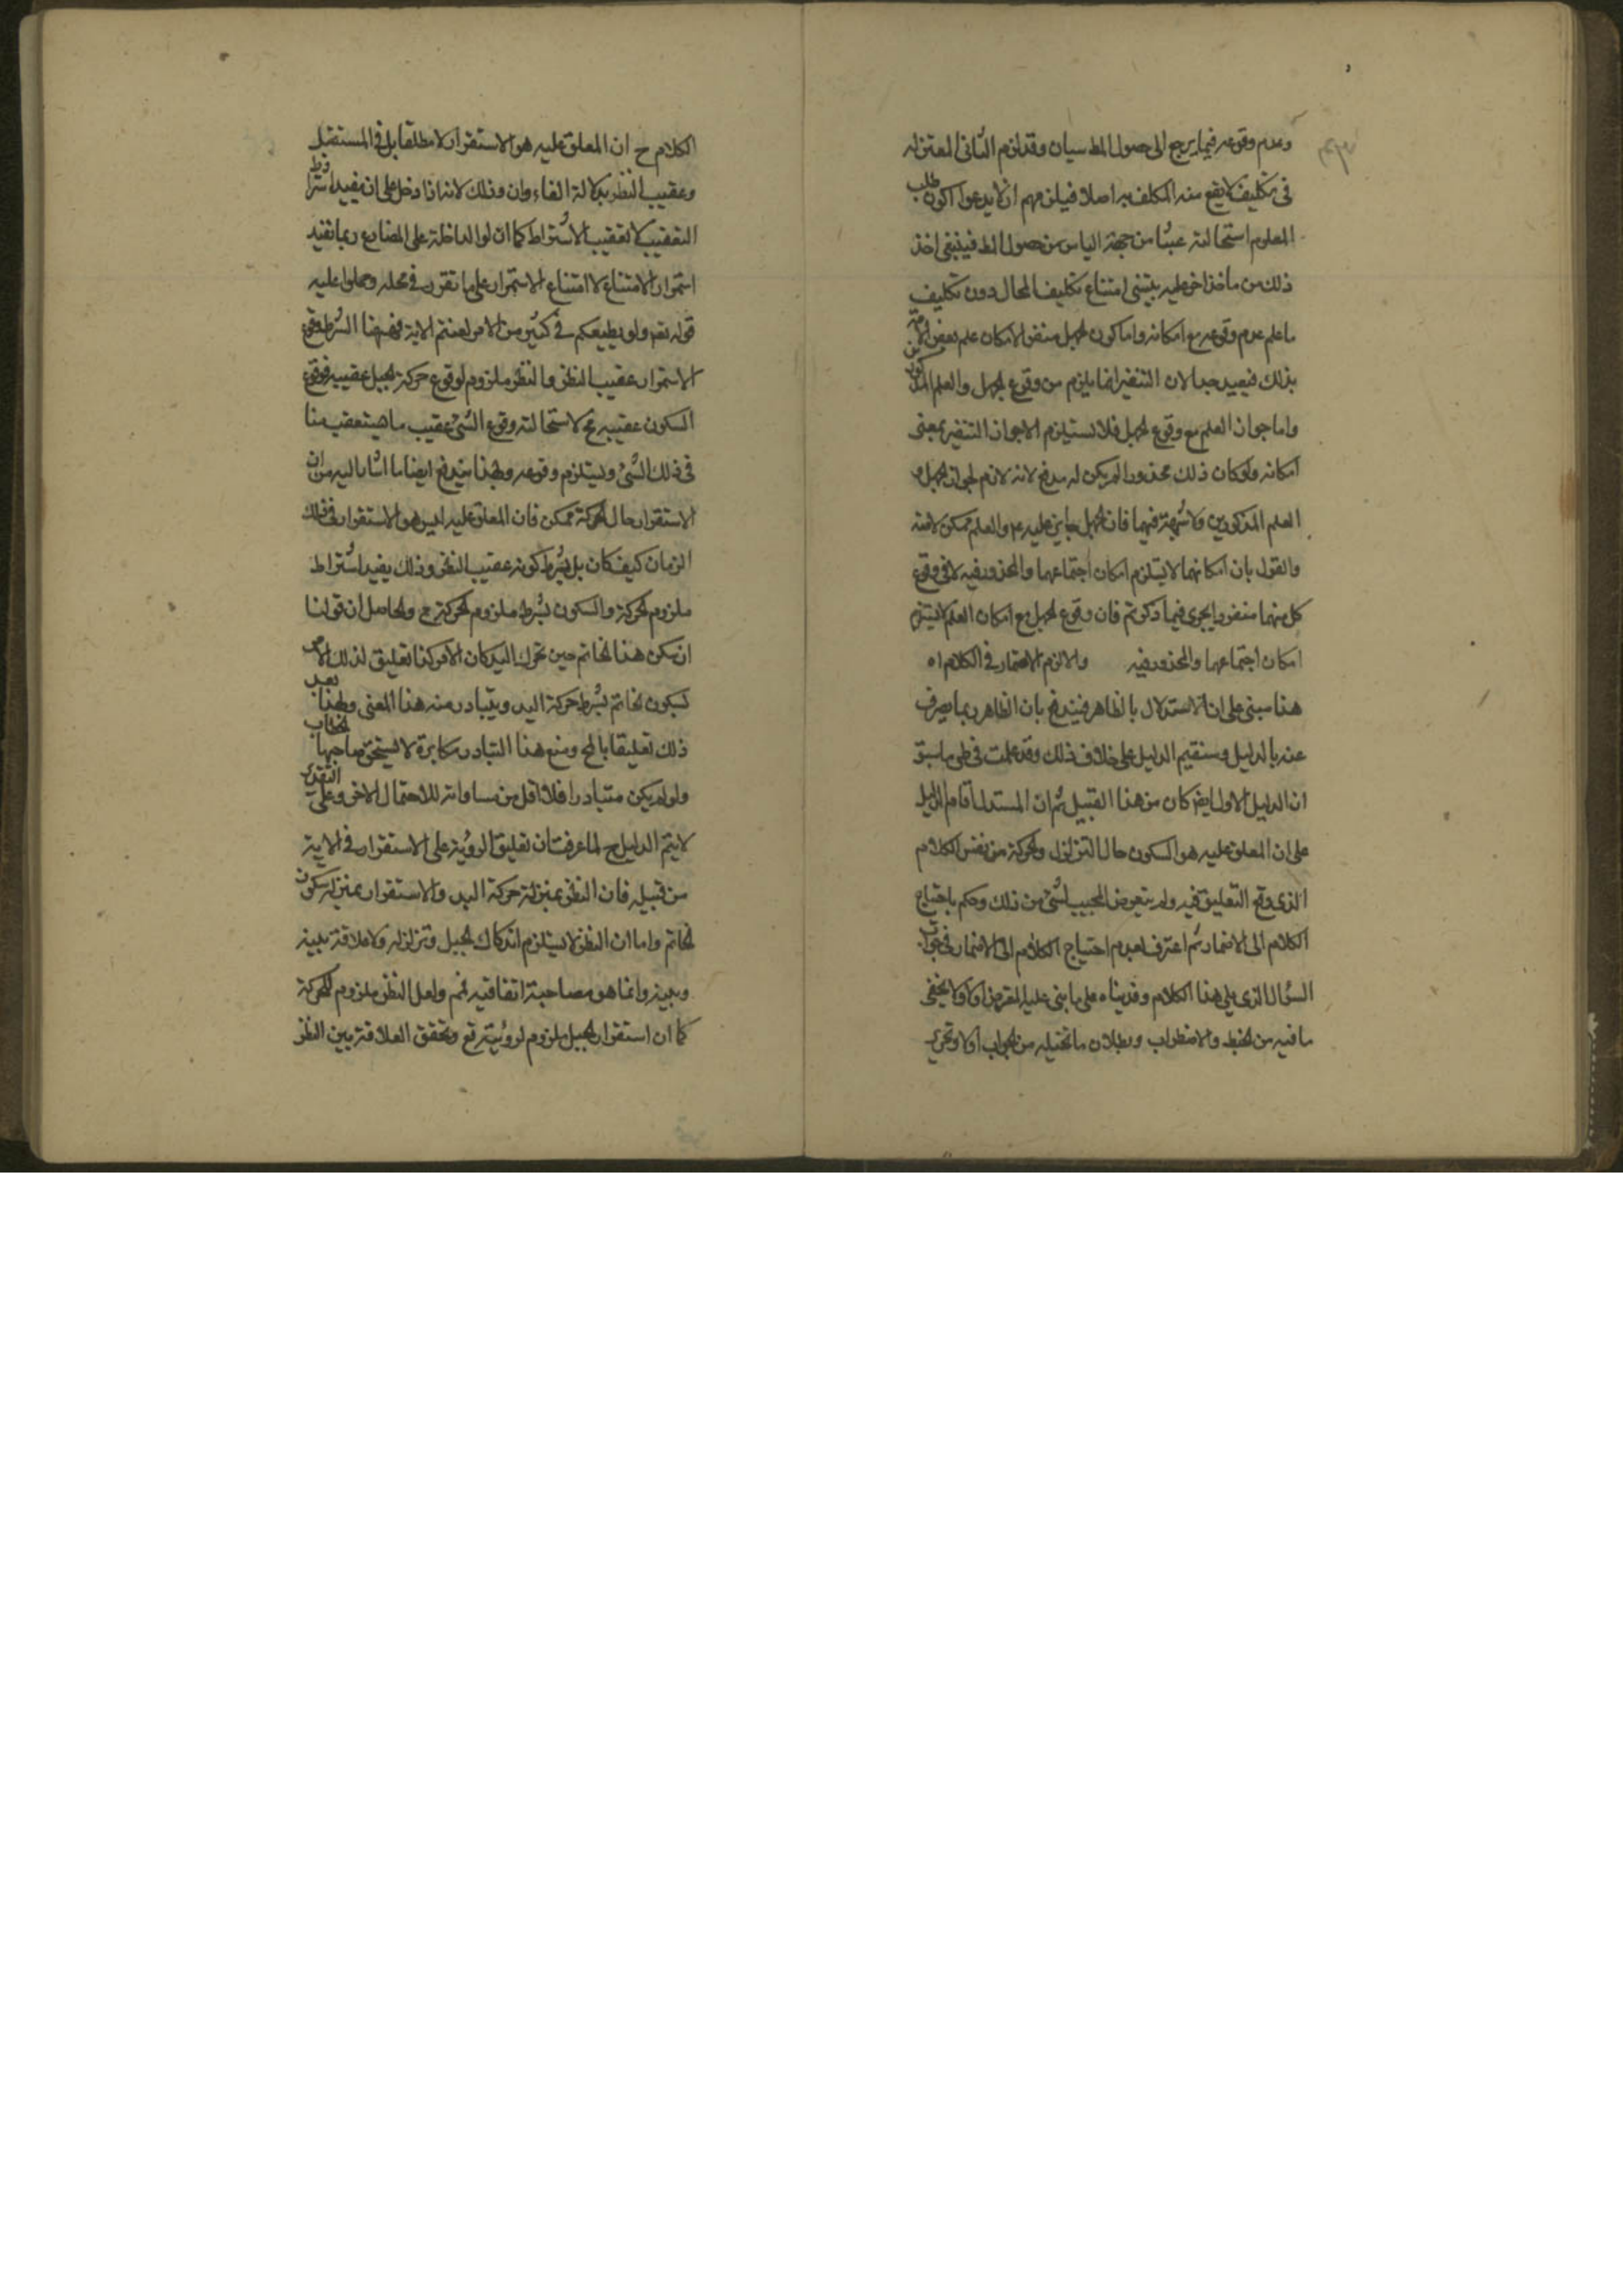 وعدم وقوعه فيما يرجع الى حصول المط سيان وقد لزم الثانى المعتزله
فى تكليف لا يقع منه المكلف به اصلا فيلزمهم ان لا يدعوا كون طلب
المعلوم استحالته عبثا من جهة الياس من حصول المط فينبغى اخذ
ذلك من ماخذ اخر عليه يبتنى امتناع تكليف المحال دون تكليف
ما علم عدم وقوعه مع امكانه واما كون الجهل منفر الامكان علم بعض الامة
بذلك فبعيد جدا لان التنفير انما يلزم من وقوع الجهل والعلم المذكورين
واما جواز العلم مع وقوع الجهل فلا يستلزم الا جواز التنفير بمعنى
امكانه ولو كان ذلك محذورا لم يكن له مدفع لانه لازم لجواز الجهل و
العلم المذكورين ولا شبهة فيهما فان الجهل جايز عليه عم والعلم ممكن لامته
والقول بان امكانهما لا يستلزم امكان اجتماعهما والمحذور فيه لا فى وقوع
كل منهما منفردا يجرى فيما ذكرتم فان وقوع الجهل مع امكان العلم لا يستلزم
امكان اجتماعهما والمحذور فيه والا لزم الاضمار فى الكلام اه
هذا مبنى على ان الاستدلال بالظاهر فيندفع بان الظاهر ربما يصرف
عنه بالدليل وسنقيم الدليل على خلاف ذلك وقد علمت فى طى ما سبق
ان الدليل الاول ايضا كان من هذا القبيل ثم ان المستدل اقام الدليل
على ان المعلق عليه هو السكون حال التزلزل والحركة من نفس الكلام
الذى وقع التعليق فيه ولم يتعرض المجيب لشئ من ذلك وحكم باحتياج
الكلام الى الاضمار ثم اعترف بعدم احتياج الكلام الى الاضمار فى جواب
السؤال الذى يلى هذا الكلام وقد بناه على ما بنى عليه المعترض اولا ولا يخفى
ما فيه من الخبط والاضطراب وبطلان ما تخيله من الجواب اولا وتحرير
الكلام ح ان المعلق عليه هو الاستقرار لا مطلقا بل فى المستقبل
وعقيب النظر بدلالة الفاء وان وذلك لانه اذا دخل على ان يفيد اشتراط
التعقيب لا تعقيب الاشتراط كما ان لو الداخلة على المضارع ربما تفيد
استمرار الامتناع لا امتناع الاستمرار على ما تقرر فى محله وحملوا عليه
قوله تعم ولو يطيعكم فى كثير من الامر لعنتم الاية فههنا الشرط وقوع
الاستمرار عقيب النظر والنظر ملزوم لوقوع حركة الجبل عقيبه فوقوع
السكون عقيبه مح لاستحالة وقوع الشئ عقيب ما يستعقب منا
فى ذلك الشئ ويستلزم وقوعه وبهذا يندفع ايضا ما اشار اليه من ان
الاستقرار حال الحركة ممكن فان المعلق عليه ليس هو الاستقرار فى ذلك
الزمان كيف كان بل بشرط كونه عقيب النظر وذلك يفيد اشتراط
ملزوم الحركة والسكون بشرط ملزوم الحركة مح والحاصل ان قولنا
ان سكن هذا الخاتم حين تحرك اليد كان الامر كذا تعليق لذلك الامر
بسكون الخاتم بشرط حركة اليد ويتبادر منه هذا المعنى ولهذا يعد
ذلك تعليقا بالمح ومنع هذا التبادر مكابرة لا يستحق صاحبها الخطاب
ولو لم يكن متبادرا فلا اقل من مساواته للاحتمال الاخر وعلى التقدير
لا يتم الدليل ح لما عرفت ان تعليق الرؤية على الاستقرار فى الاية
من قبيله فان النظر بمنزلة حركة اليد والاستقرار بمنزلة سكون
الخاتم واما ان النظر لا يستلزم اندكاك الجبل وتزلزله ولا علاقة بينه
وبينه وانما هو مصاحبة اتفاقيه فمم ولعل النظر ملزوم للحركة
كما ان استقرار الجبل ملزوم لرؤيته تع وتحقق العلاقة بين النظر